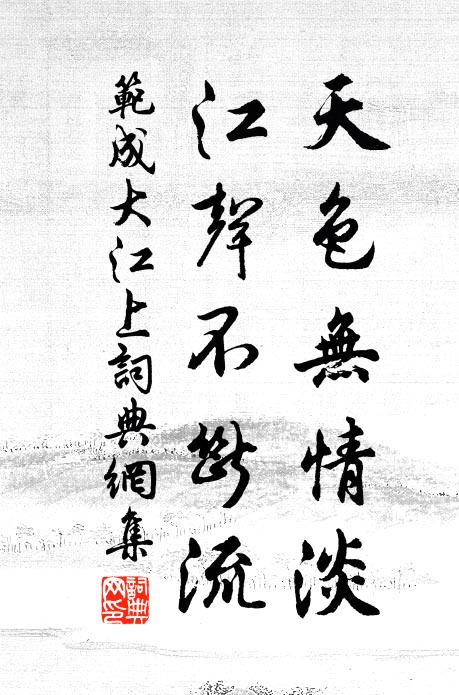 天色無情淡
江聲不斷流
範成大江上詞典網集
詞典
网印